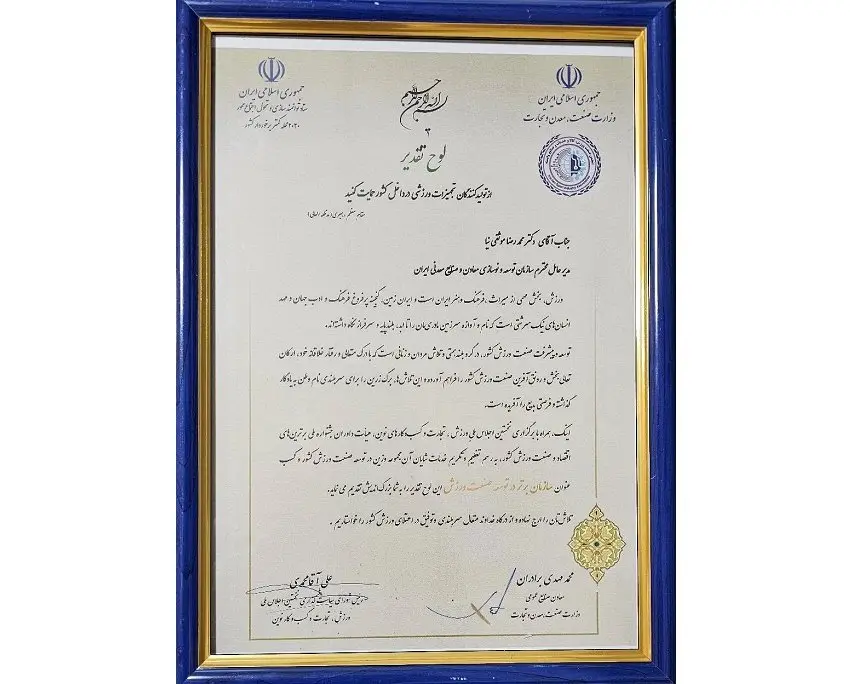 جمهوری اسلامی ایران
وزارت صنعت، معدن و تجارت
جمهوری اسلامی ایران
ستاد توانمندسازی و تحول اجتماع محور
۲۰۲۰ محله کمتر برخوردار کشور
بسم الله الرحمن الرحیم
لوح تقدیر
از تولیدکنندگان تجهیزات ورزشی در داخل کشور حمایت کنید
مقام معظم رهبری (مدظله العالی)
جناب آقای دکتر محمد رضا موثقی نیا
مدیر عامل محترم سازمان توسعه و نوسازی معادن و صنایع معدنی ایران
ورزش، بخش مهمی از میراث، فرهنگ و هنر ایران است و ایران زمین، گنجینه پر فروغ فرهنگ و ادب جهان و مهد
انسان‌های نیک سرشتی است که نام و آوازه سرزمین مادری‌مان را تا ابد، بلندپایه و سرفراز نگاه داشته‌اند.
توسعه و پیشرفت صنعت ورزش کشور، در گرو بلندهمتی و تلاش مردان و زنانی است که با درک متعالی و رفتار خلاقانه خود، ارکان
تعالی بخش و رونق آفرین صنعت ورزش کشور را فراهم آورده و این تلاش‌ها، برگ زرین را برای سربلندی نام وطن به یادگار
گذاشته و فرصتی بدیع را آفریده است.
اینک، همراه با برگزاری نخستین اجلاس ملی ورزش، تجارت و کسب و کارهای نوین، هیئت داوران جشنواره ملی برترین‌های
اقتصاد و صنعت ورزش کشور، به رسم تعظیم و تکریم خدمات شایان آن مجموعه وزین در توسعه صنعت ورزش کشور و کسب
عنوان سازمان برتر در توسعه صنعت ورزش این لوح تقدیر را به شما بزرگ اندیش تقدیم می نماید.
تلاش‌تان را ارج نهاده و از درگاه خداوند متعال سربلندی و توفیق در اعتلای ورزش کشور را خواستاریم.
محمد مهدی برادران
معاون صنایع عمومی
وزارت صنعت، معدن و تجارت
علی آقامحمدی
رییس شورای سیاست گذاری نخستین اجلاس ملی
ورزش، تجارت و کسب و کار نوین